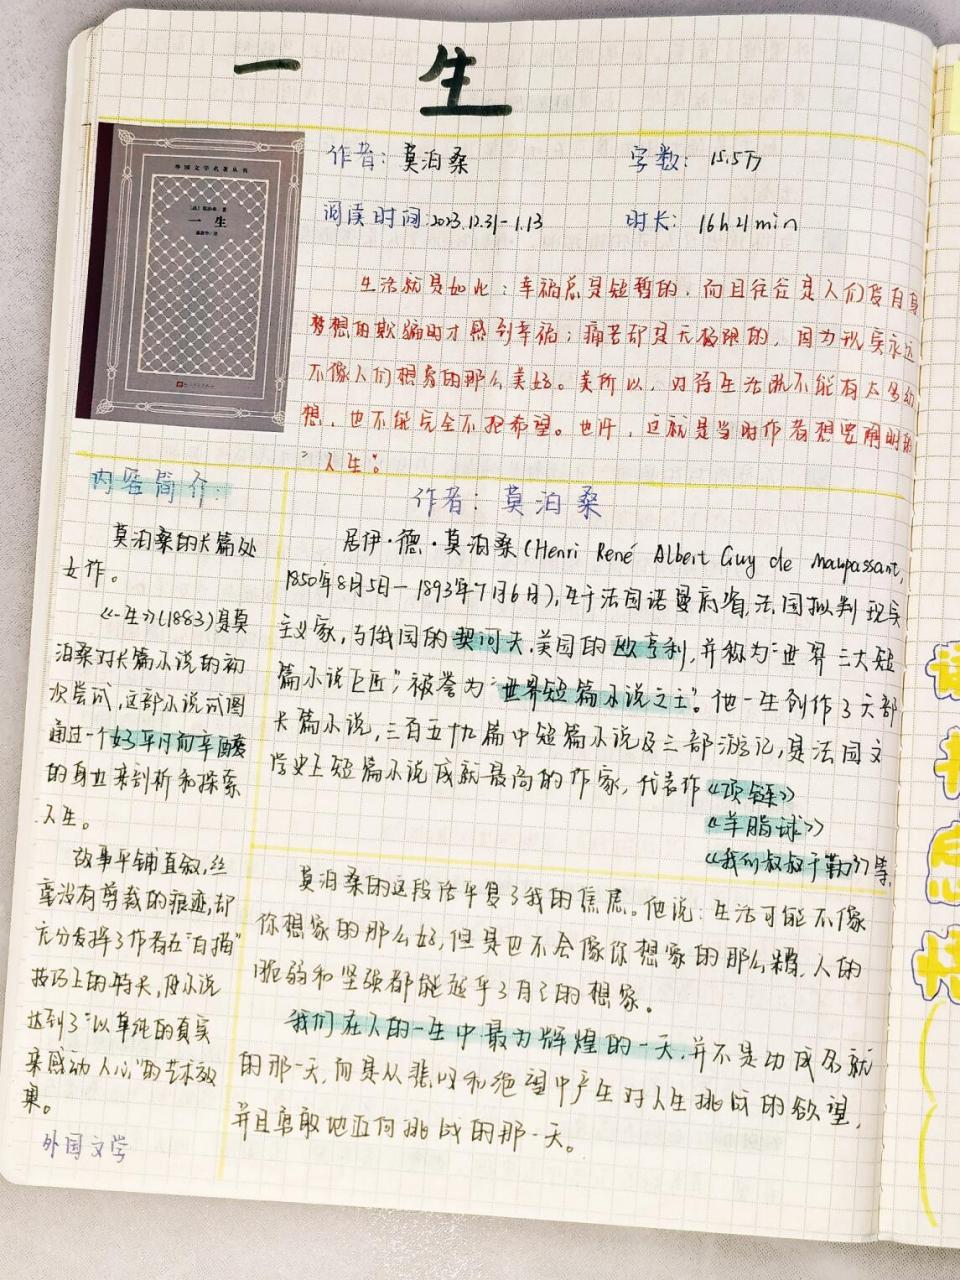 一 生
外国文学名著丛书
一生
作者：莫泊桑
字数：15.5万
阅读时间：2023.12.31-1.13
时长：16h21min
生活就是如此：幸福总是短暂的，而且往往是人们没有身
梦想的欺骗时才感到幸福；痛苦却是无极限的，因为现实永远
不像人们想象的那么美好。美所以，对待生活既不能有太多幻
想，也不能完全不抱希望。也许，这就是当时作者想要阐明的
"人生"。
内容简介：
莫泊桑的长篇处
女作。
《一生》(1883)是莫
泊桑对长篇小说的初
次尝试，这部小说试图
通过一个好平凡而辛酸
的身世来剖析和探索
人生。
故事平铺直叙，丝
毫没有剪裁的痕迹，却
充分发挥了作者在"白描"
技巧上的特长，使小说
达到了"以单纯的真实
来感动人心"的艺术效
果。
外国文学
作者：莫泊桑
居伊·德·莫泊桑(Henri René Albert Guy de Maupassant,
1850年8月5日—1893年7月6日)，生于法国诺曼底省，法国批判现实
主义家，与俄国的契诃夫，美国的欧亨利，并称为"世界三大短
篇小说巨匠"，被誉为"世界短篇小说之王"。他一生创作了六部
长篇小说，三百五十九篇中短篇小说及三部游记，是法国文
学史上短篇小说成就最高的作家，代表作《项链》
《羊脂球》
《我们叔叔于勒》等。
莫泊桑的这段话平复了我的焦虑。他说：生活可能不像
你想象的那么好，但是也不会像你想象的那么糟，人的
脆弱和坚强都能超乎了自己的想象。
我们在人的一生中最为辉煌的一天，并不是功成名就
的那一天，而是从悲叹和绝望中产生对人生挑战的欲望，
并且勇敢地迈向挑战的那一天。